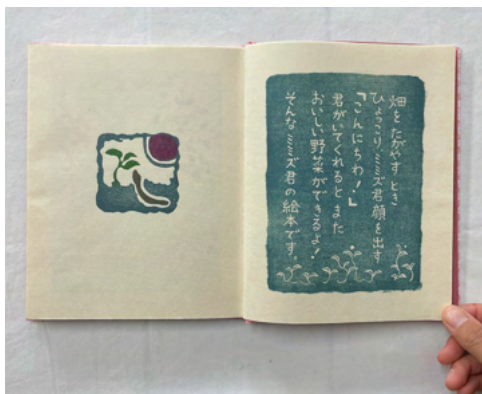 畑をたがやすとき
ひょっこりミミズ君顔を出す
「こんにちわ！」
君がいてくれるとまた
おいしい野菜ができるよ！
そんなミミズ君の絵本です。